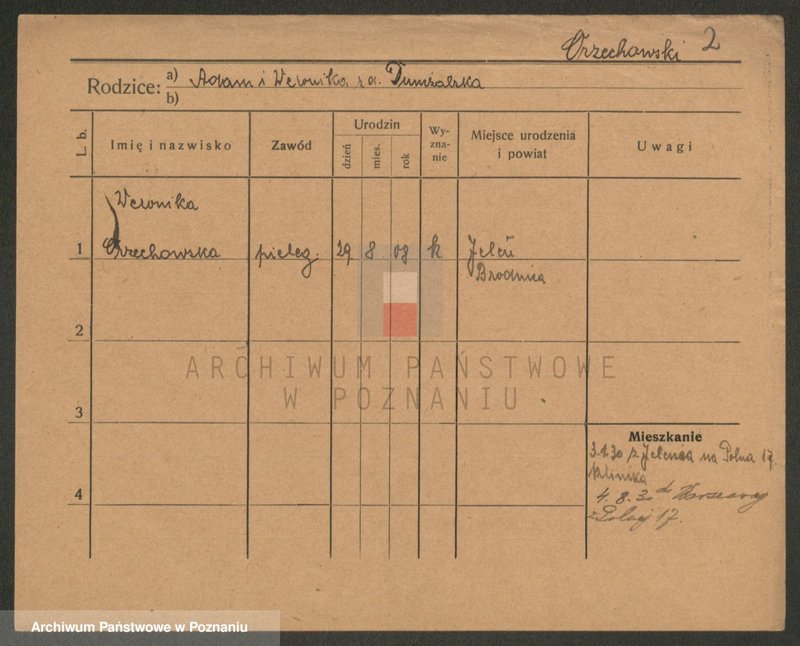 Orzechowski 2
Rodzice: a) Adam i Weronika z d.
b)
L. b.
Imię i nazwisko
Zawód
Urodzin
dzień
mies.
rok
Wy-
zna-
nie
Miejsce urodzenia
i powiat
Uwagi
Weronika
1 Orzechowska pieleg. 29 8 08 k Jeleń
Brodnica
2
3
4
ARCHIWUM PAŃSTWOWE
W POZNANIU
Mieszkanie
3.1.30 z Jelenia na Polna 17
Klinika
4.8.30 do Warszawy
z Polnej 17.
Archiwum Państwowe w Poznaniu